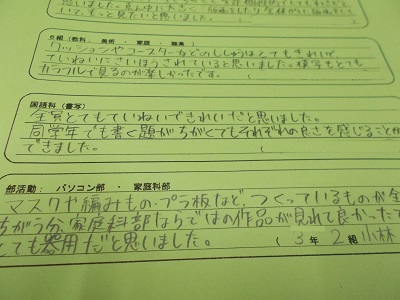 思いました。
いて、もっと見たいと思
6組（教科： 美術 ・ 家庭 ・ 職業 ）
クッションやコースターなどのししゅうはとてもきれいで
ていねいにさいほうされていると思いました。模写もとても
カラフルで見るのが楽しかったです。
国語科（書写）
全員とてもていねいできれいだと思いました。
同学年でも書く題がちがくてもそれぞれの良さを感じること
できました。
部活動： パソコン部 ・ 家庭科部
マスクや編みもの・プラ板など、つくっているものが全
ちがう分、家庭科部ならではの作品が見れて良かったで
とても器用だと思いました。
（ 3 年 2 組 小林